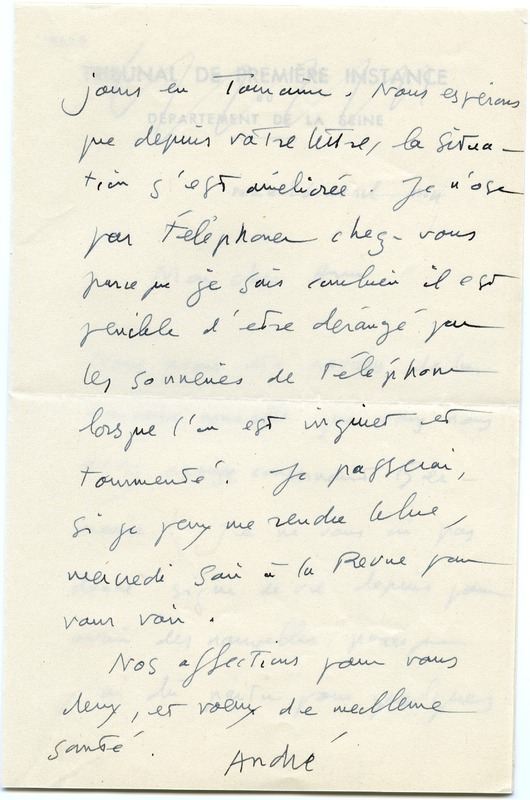 jours en Touraine. Nous espérons
que depuis votre lettre, la situa-
tion s'est améliorée. Je n'ose
pas téléphoner chez-vous
parce que je sais combien il est
pénible d'être dérangé par
les sonneries de téléphone
lorsque l'on est inquiet et
tourmenté. Je passerai,
si je peux me rendre libre,
mercredi soir à la Revue pour
vous voir.
Nos affections pour vous
deux, et voeux de meilleure
santé.
André
TRIBUNAL DE PREMIÈRE INSTANCE
DU
DÉPARTEMENT DE LA SEINE